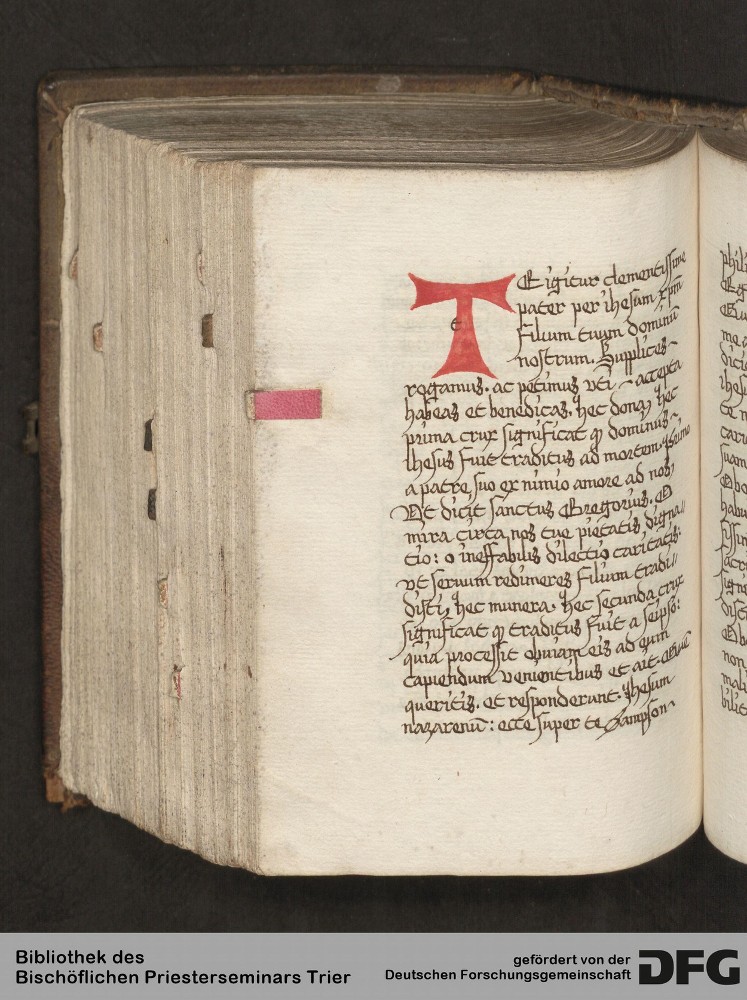 T
t
E igitur clementissime
pater per ihesum xpm
Filium tuum dominū
nostrum. Supplices
rogamus. ac petimus vti accepta
habeas et benedicas, hec dona, hec
prima crux significat ꝙ dominus
Ihesus fuit traditus ad mortem
a patre suo ex nimio amore ad nos,
Vt dicit sanctus Gregorius. O
mira circa nos tue pietatis digna//
tio: o ineffabilis dilectio caritatis:
vt seruum redimeres Filium tradi//
disti, hec munera. hec secunda crux
significat ꝙ traditus fuit a seipso:
quia processit obuiam eis ad eum
capiendum venientibus et ait. Quē
queritis. et responderunt. Ihesum
nazarenū: ecce super te Sampson
phili
me a
dicit
ihesu
cari
suam
habu
non
mali
bilit
Bibliothek des
Bischöflichen Priesterseminars Trier
gefördert von der
Deutschen Forschungsgemeinschaft
DFG